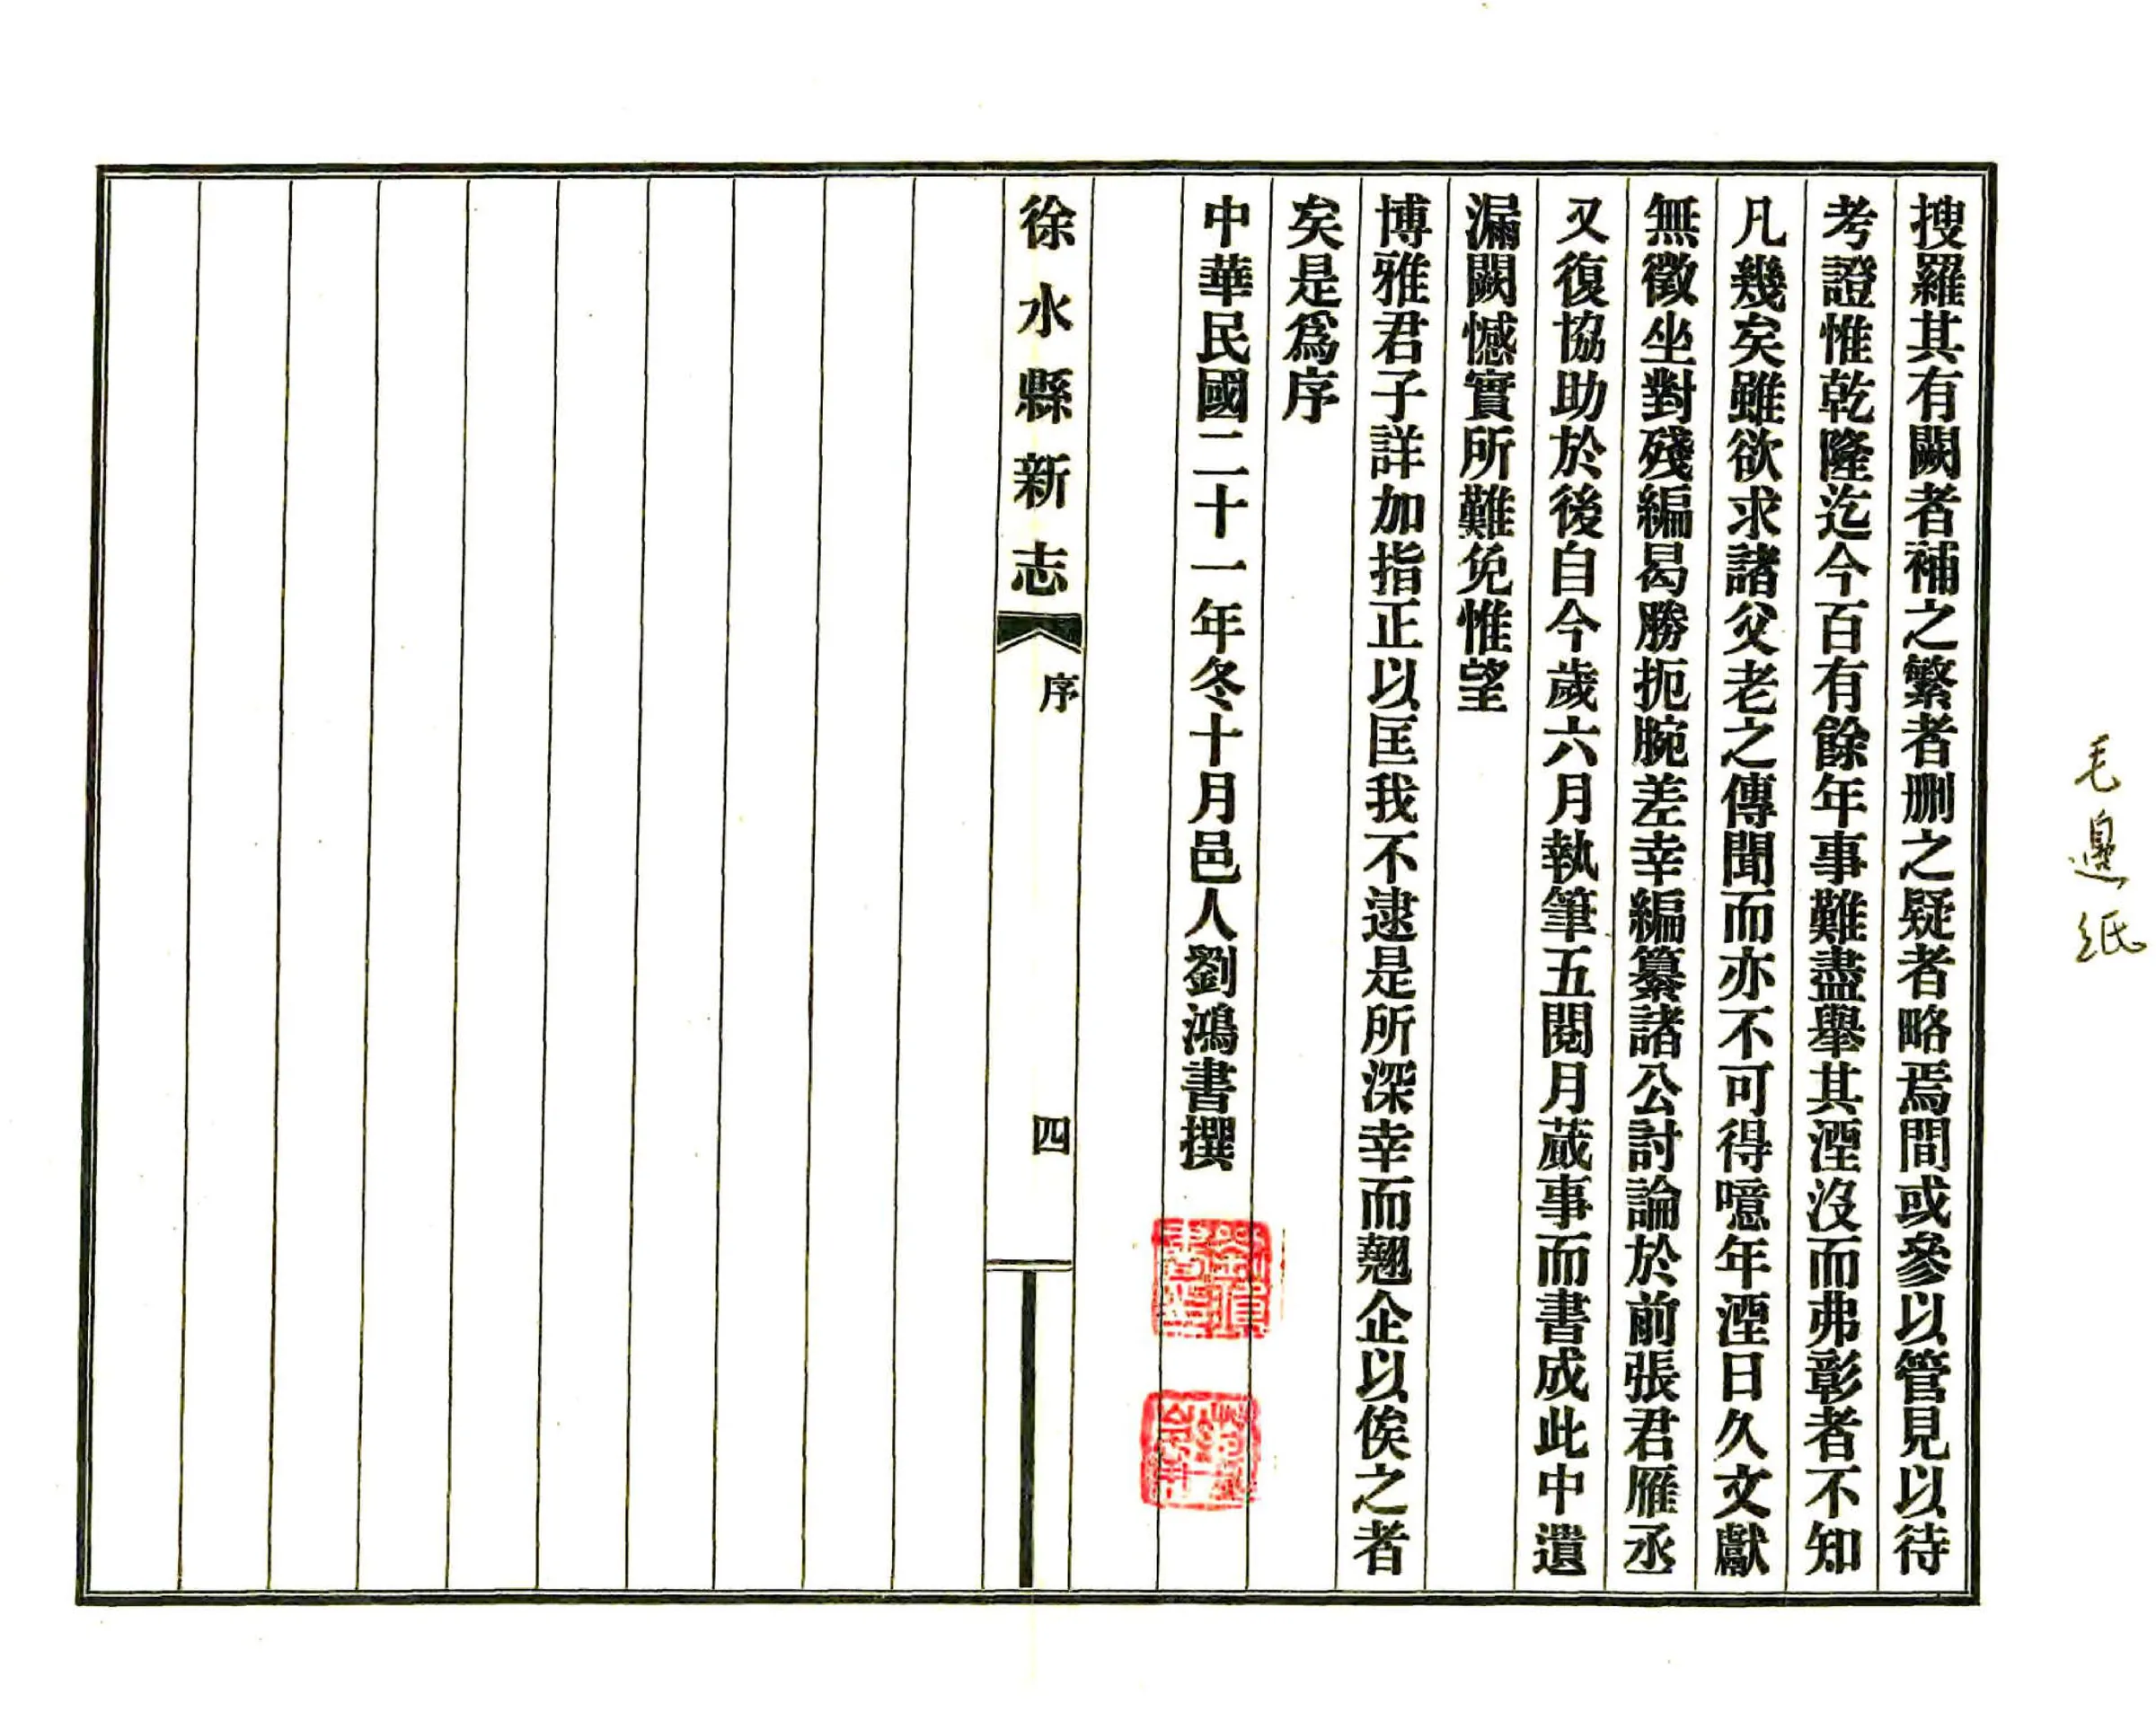 搜羅其有闕者補之繁者删之疑者略焉間或參以管見以待
考證惟乾隆迄今百有餘年事難盡舉其湮沒而弗彰者不知
凡幾矣雖欲求諸父老之傳聞而亦不可得噫年湮日久文獻
無徵坐對殘編曷勝扼腕差幸編纂諸公討論於前張君雁丞
又復協助於後自今歲六月執筆五閱月蕆事而書成此中遺
漏闕憾實所難免惟望
博雅君子詳加指正以匡我不逮是所深幸而翹企以俟之者
矣是爲序
中華民國二十一年冬十月邑人劉鴻書撰
徐水縣新志
序
四
毛邊紙